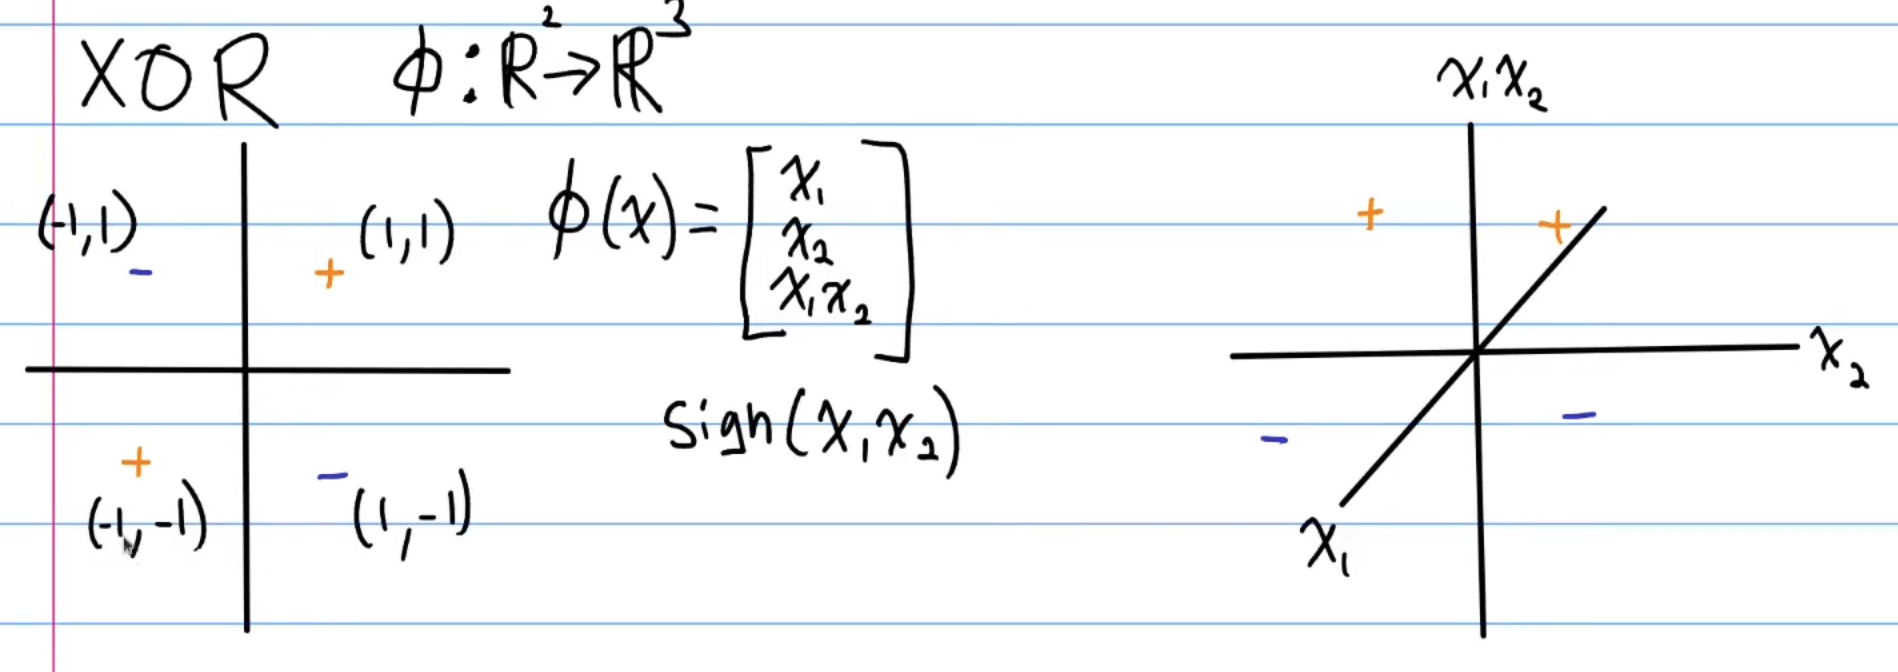 XOR ϕ:R²→ℝ³
(-1,1) (1,1)
- +
+ -
(-1,-1) (1,-1)
ϕ(x)=[x₁
x₂
x₁x₂]
Sign(x₁x₂)
x₁x₂
+ +
x₂
- -
x₁